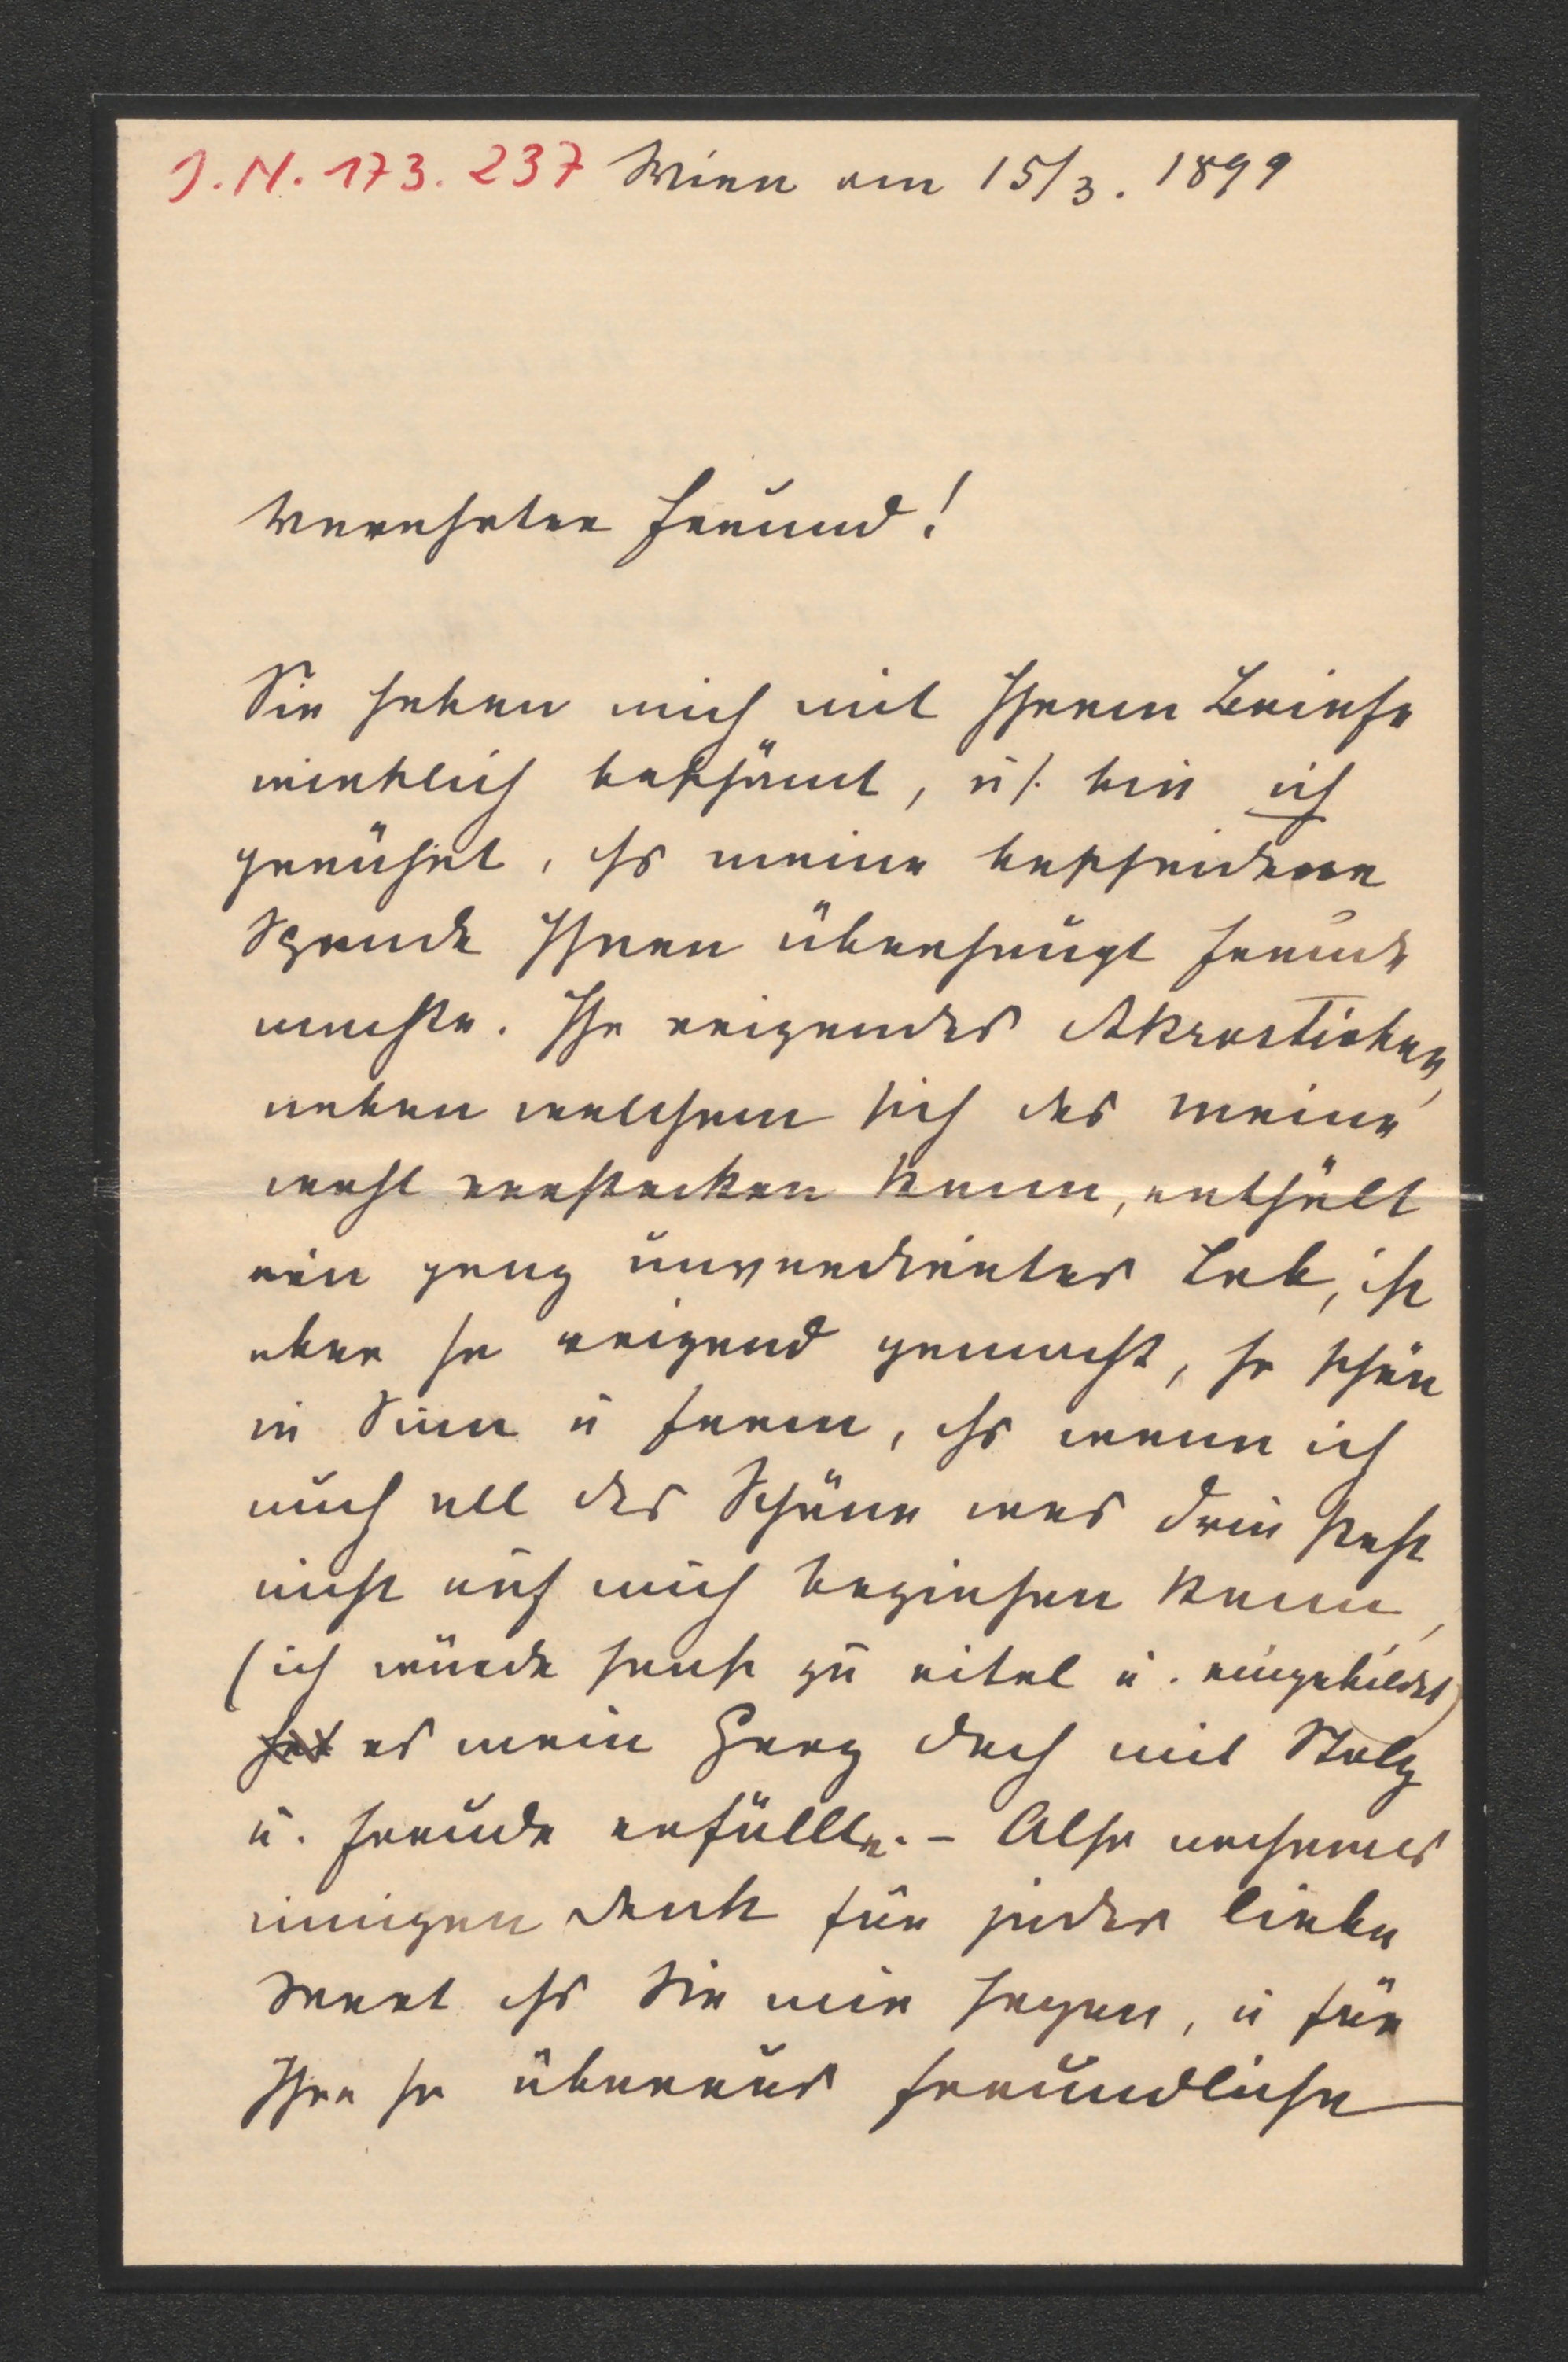 J.N. 173.237 Wien am 15/3. 1899
Verehrter Freund!
Sie haben mich mit Ihrem Briefe
wirklich beschämt, u. bin ich
gerührt, daß meine bescheidene
Spende Ihnen überhaupt Freude
machte. Ihr reizendes Akrostichon,
neben welchem sich das meine
wohl verstecken kann, enthält
ein ganz unverdientes Lob, ist
aber so reizend gemacht, so schön
in Sinn u Form, daß wenn ich
auch all das Schöne was drin steht
nicht auf mich beziehen kann,
(ich würde sonst zu eitel u. eingebildet)
hat es mein Herz doch mit Stolz
u. Freude erfüllte. – Also nochmals
innigen Dank für jedes liebe
Wort das Sie mir sagen, u für
Ihre so überaus freundliche